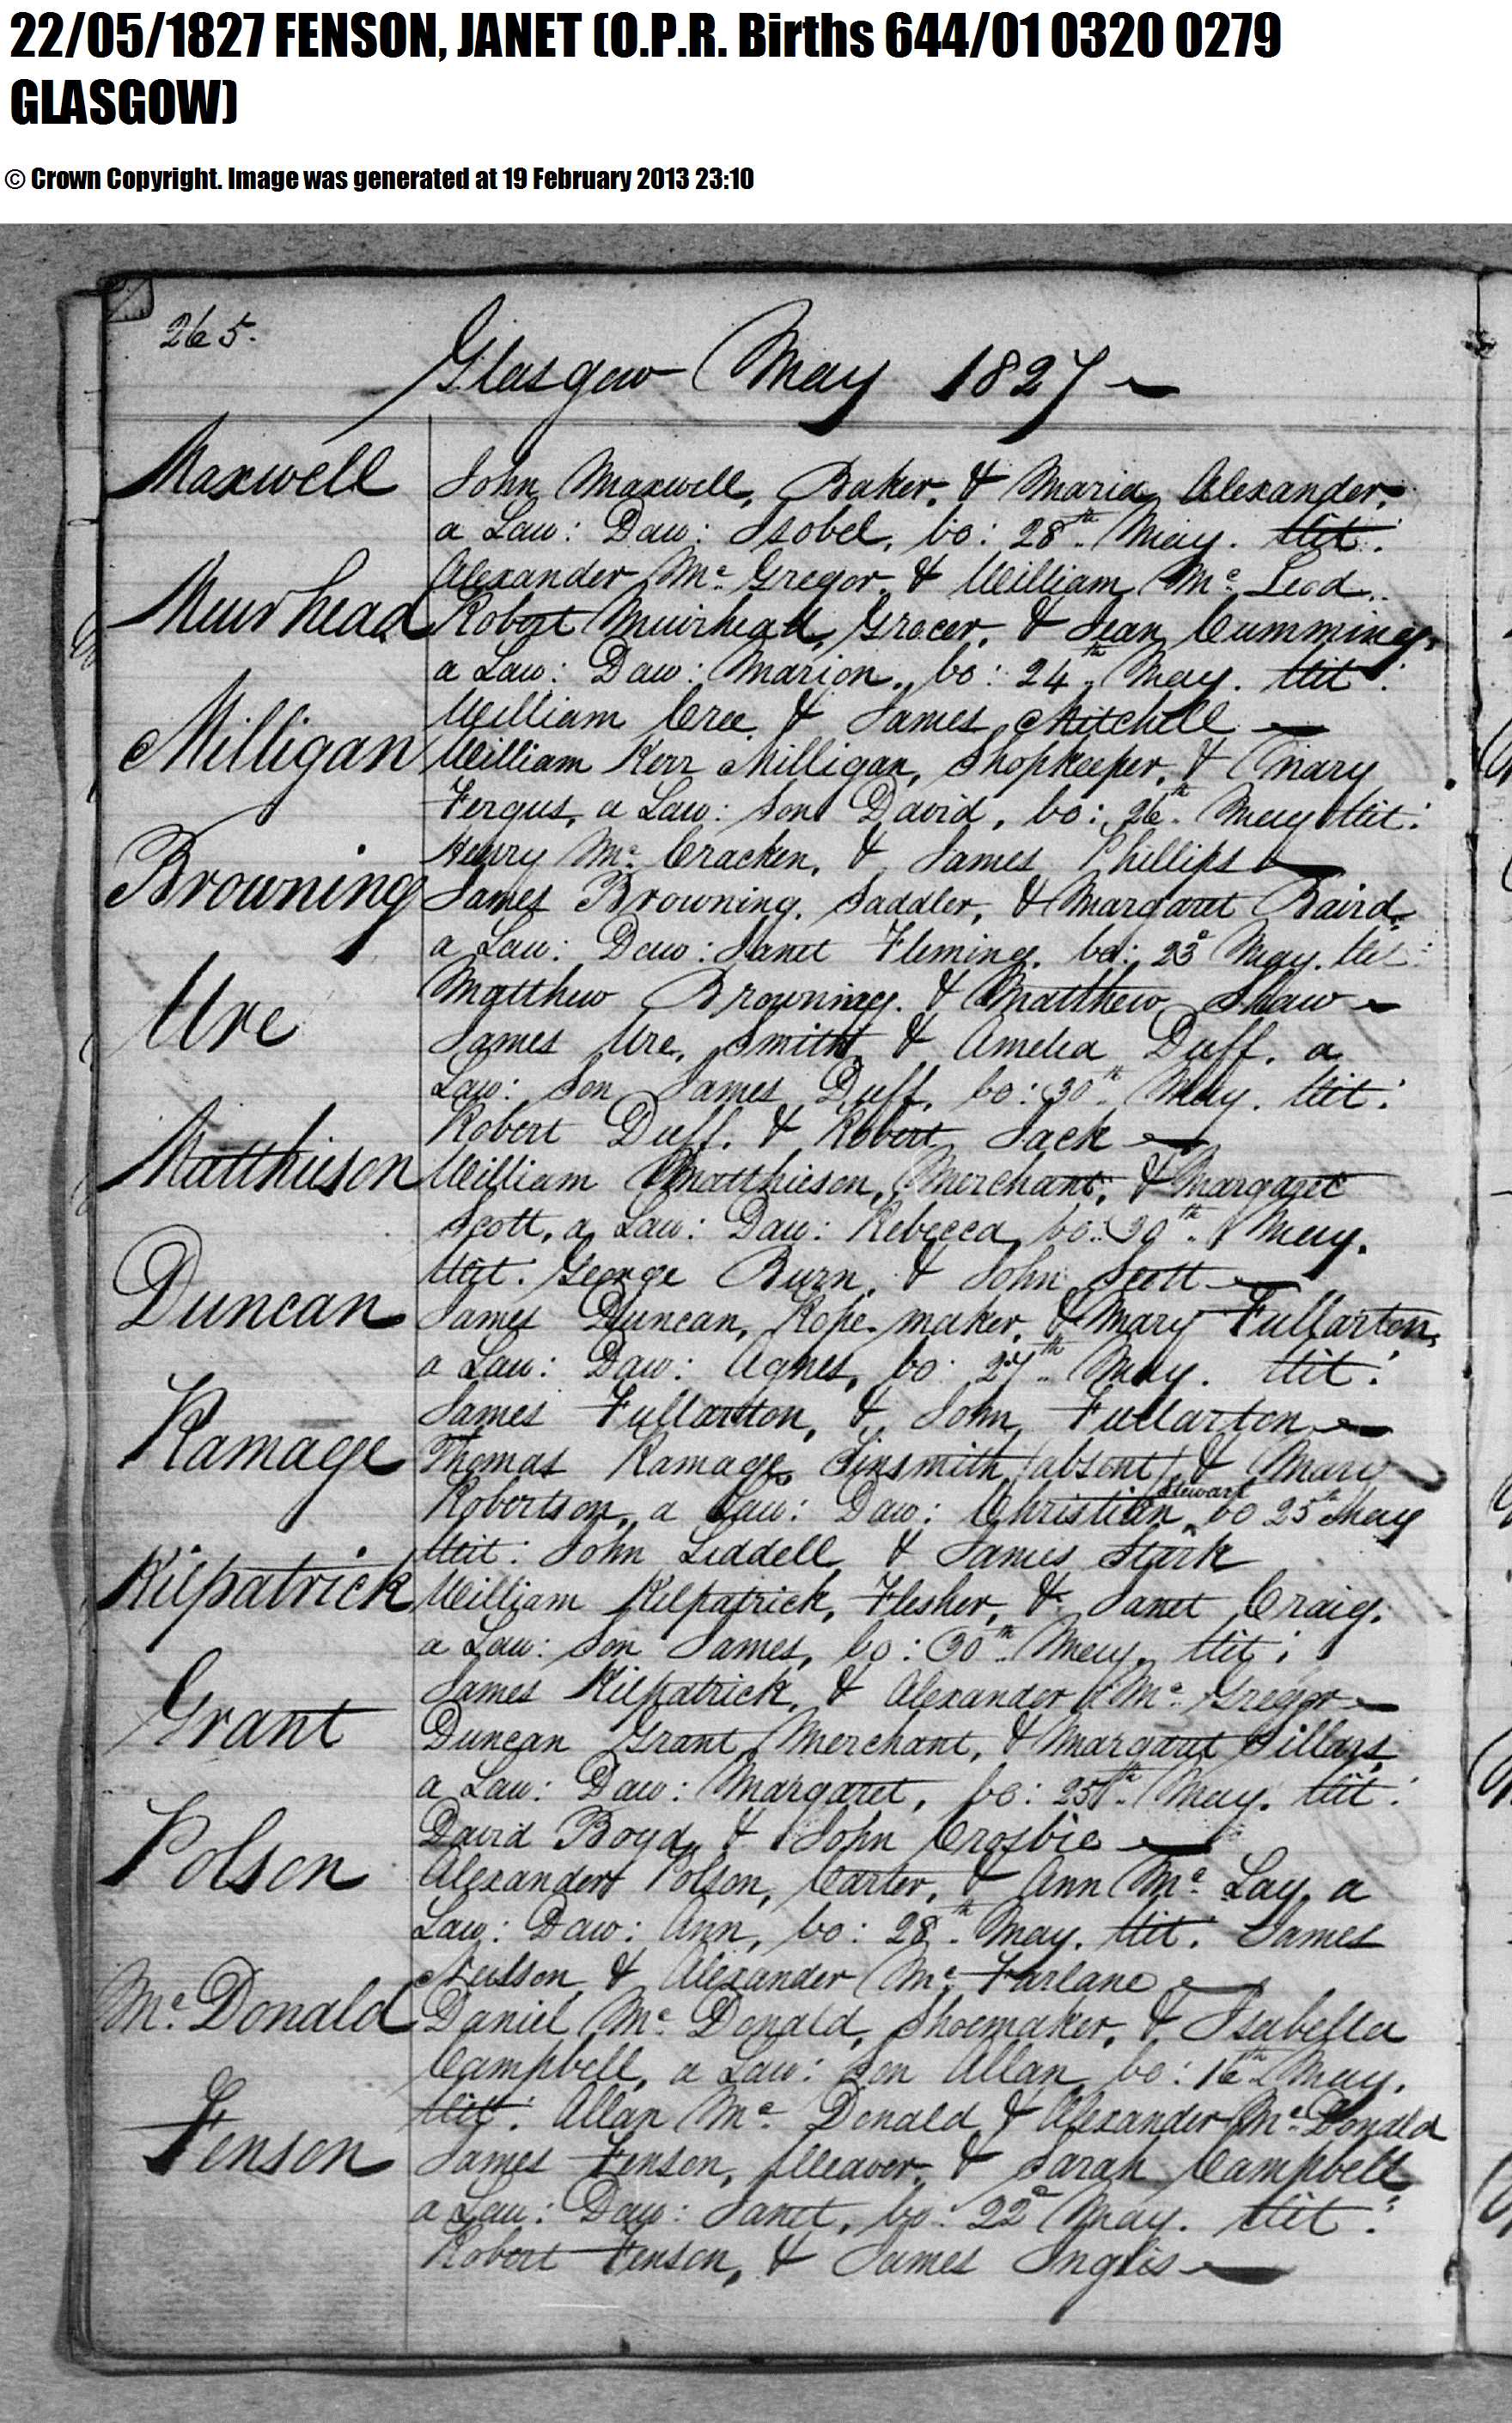 22/05/1827 FENSON, JANET (O.P.R. Births 644/01 0320 0279
GLASGOW)
© Crown Copyright. Image was generated at 19 February 2013 23:10
265.
Glasgow May 1827
Maxwell
John Maxwell, Baker, & Maria Alexander,
a Law: Daw: Isobel, bo: 28th May. Wit:
Alexander Mc Gregor & William Mc Leod
Muirhead
Robert Muirhead, Grocer, & Jean Cumming,
a Law: Daw: Marion, bo: 24th May. Wit:
William Cree & James Mitchell
Milligan
William Kerr Milligan, Shopkeeper, & Mary
Fergus, a Law: Son David, bo: 26th May Wit:
Henry Mc Cracken, & James Phillips
Browning
James Browning, Saddler, & Margaret Baird,
a Law: Daw: Janet Fleming, bo: 23d May. Wit:
Matthew Browning, & Matthew Shaw
Ure
James Ure, Smith, & Amelia Duff, a
Law: Son James Duff, bo: 30th May. Wit:
Robert Duff, & Robert Jack
Matthieson
William Matthieson, Merchant, & Margaret
Scott, a Law: Daw: Rebecca, bo: 30th May.
Wit: George Burn, & John Scott
Duncan
James Duncan, Rope-maker, & Mary Fullarton,
a Law: Daw: Agnes, bo: 27th May. Wit:
James Fullarton, & John Fullarton
Ramage
Thomas Ramage, Tinsmith (absent) & Mary
Robertson, a Law: Daw: Christian Stewart, bo 25th May
Wit: John Liddell & James Stark
Kilpatrick
William Kilpatrick, Flesher, & Janet Craig,
a Law: Son James, bo: 30th May. Wit:
James Kilpatrick, & Alexander Mc Gregor
Grant
Duncan Grant, Merchant, & Margaret Pillars,
a Law: Daw: Margaret, bo: 25th May. Wit:
David Boyd, & John Crosbie
Polson
Alexander Polson, Carter, & Ann Mc Lay, a
Law: Daw: Ann, bo: 28th May. Wit: James
Neilson & Alexander Mc Farlane
Mc Donald
Daniel Mc Donald, Shoemaker, & Isabella
Campbell, a Law: Son Allan, bo: 16th May.
Wit: Allan Mc Donald & Alexander Mc Donald
Fenson
James Fenson, Weaver, & Sarah Campbell
a Law: Daw: Janet, bo: 22d May. Wit:
Robert Fenson, & James Inglis